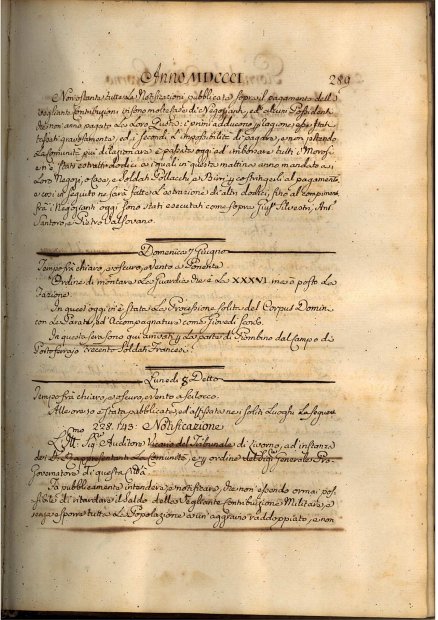 Anno MDCCCI. 289
Nonostante tutte le Notificazioni pubblicate sopra il pagamento delle
veglianti contribuzioni in sono molte fra de Negozianti, ed alcuni Possidenti
che non anno pagato le Loro Quote; i primi adducono p ragione esser stati
tassati gravosamente, ed i secondi l'impossibilità di pagare, e non potendo
la Comunità più dilazionare è passata oggi ad imborsare tutti i Morosi
e ne è stati estratti dodici ai quali in questa mattina anno mandato ai
Loro Negozi, o Case, e Soldati Pollacchi e Birri p costringerli al pagamento
e così di seguito ne sarà fatta l'estrazione di altri dodici, fino al compimento
frà i Negozianti oggi sono stati esecutati come sopra Giuse Silvestri, Ant
Santoro e Pietro Valsovano.
Domenica 7 Giugno
Tempo frà chiaro, e oscuro, e vento a Ponente
Ordine di montare la Guardia che è la XXXVI. ma è posto la
Fazione
In quest'oggi vi è stata la Processione solita del Corpus Domini
con la Parata, ed Accompagnatura come Giovedì scorso.
In questa sera sono qui arrivati p la parte di Piombino dal campo di
Portoferrajo trecento Soldati Francesi.
Lunedì 8 Detto
Tempo frà chiaro, e oscuro, e vento a scirocco.
Alle ore 10 è stata pubblicata, ed affissata nei soliti Luoghi la seguente
228. 143. Notificazione
L'Ill.mo Sig.e Auditore Vicario del Tribunale di Livorno, ad instanza
dei Rappresentanti la Comunità, e p ordine del Sig.e Generale Pro
Governatore di questa Città
Fà pubblicamente intendere, e notificare, che non essendo ormai pos
sibile di ritardare il Saldo della Vegliante Contribuzione Militare, e
senza esporre tutta la Popolazione a un aggravio raddoppiato, e non